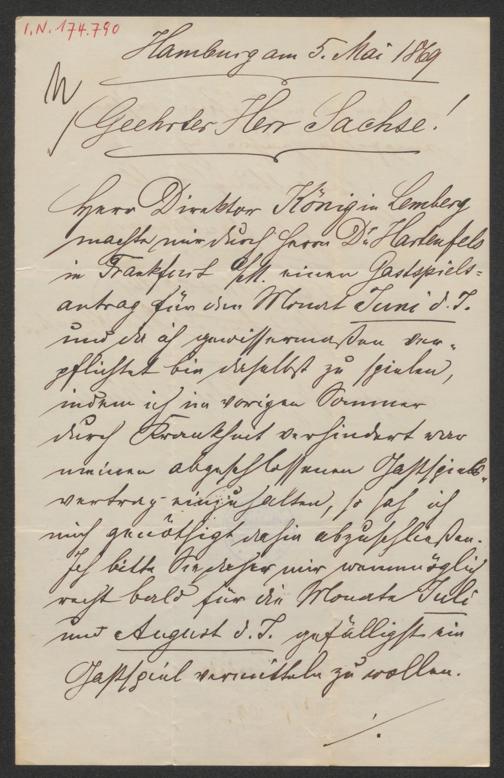 I.N. 174.790
Hamburg am 5. Mai 1869
Geehrter Herr Sachse!
Herr Direktor König in Lemberg
machte mir durch Herrn Dr Hartenfels
in Frankfurt a/M. einen Gastspiels=
antrag für den Monat Juni d. J.
und da ich gewissermaßen ver=
pflichtet bin daselbst zu spielen,
indem ich im vorigen Sommer
durch Krankheit verhindert war
meinen abgeschlossenen Gastspiels=
vertrag einzuhalten, so sah ich
mich genöthigt dahin abzuschließen.
Ich bitte Sie daher mir womöglich
recht bald für die Monate Juli
und August d. J. gefälligst ein
Gastspiel vermitteln zu wollen.
./.